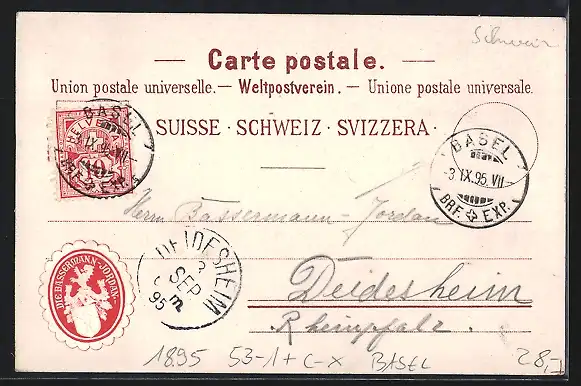 Schweiz
— Carte postale. —
Union postale universelle. — Weltpostverein. — Unione postale universale.
SUISSE · SCHWEIZ · SVIZZERA ·
BASEL
3 IX. 95. VII
BRF. EXP.
HELVETIA
10
BASEL
-3.IX.95.VII
BRF. EXP.
Herrn Bassermann-Jordan
DEIDESHEIM
SEP.
95
Deidesheim
Rheinpfalz.
DIE BASSERMANN-JORDAN-
1895 53-1+C-X BASEL 28,-